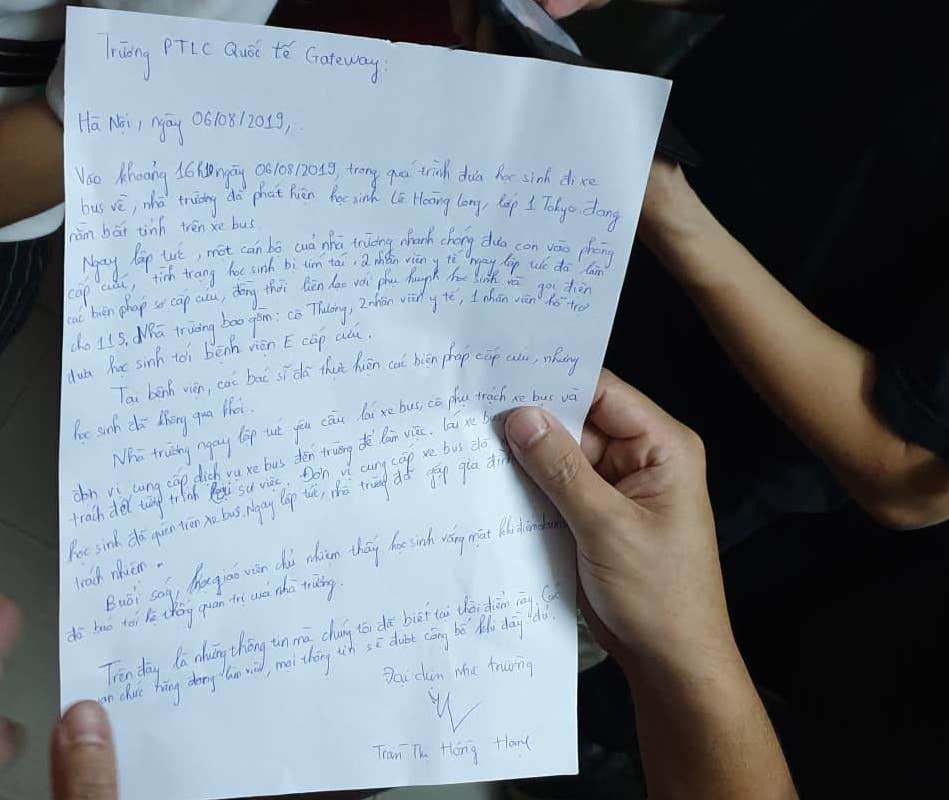 Trường PTLC Quốc tế Gateway:
Hà Nội, ngày 06/08/2019,
Vào khoảng 16h10 ngày 06/08/2019, trong quá trình đưa học sinh đi xe
bus về, nhà trường đã phát hiện học sinh Lê Hoàng Long, lớp 1 Tokyo đang
nằm bất tỉnh trên xe bus.
Ngay lập tức, một cán bộ của nhà trường nhanh chóng đưa con vào phòng
cấp cứu, tình trạng học sinh bị tím tái, 2 nhân viên y tế ngay lập tức đã làm
các biện pháp sơ cấp cứu, đồng thời liên lạc với phụ huynh học sinh và gọi điện
cho 115. Nhà trường bao gồm: cô Thương, 2 nhân viên y tế, 1 nhân viên hỗ trợ
đưa học sinh tới bệnh viện E cấp cứu.
Tại bệnh viện, các bác sĩ đã thực hiện các biện pháp cấp cứu, nhưng
học sinh đã không qua khỏi.
Nhà trường ngay lập tức yêu cầu lái xe bus, cô phụ trách xe bus và
đơn vị cung cấp dịch vụ xe bus đến trường để làm việc. Lái xe bus
trách đã tường trình sự việc. Đơn vị cung cấp xe bus đã
học sinh đã quên trên xe bus. Ngay lập tức, nhà trường đã gặp gia đình
trách nhiệm.
Buổi sáng, giáo viên chủ nhiệm thấy học sinh vắng mặt khi điểm danh
đã báo tới hệ thống quản trị của nhà trường.
Trên đây là những thông tin mà chúng tôi đã biết tại thời điểm này. Các
quan chức năng đang làm việc, mọi thông tin sẽ được công bố khi đầy đủ.
Đại diện nhà trường
Trần Thị Hồng Hạnh